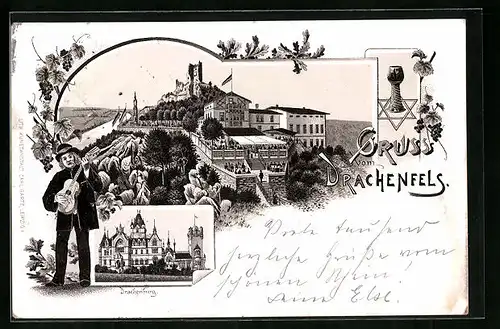 GRUSS
vom
DRACHENFELS.
Viele tausend
herzliche Grüße vom
schönen Rhein!
Deine Else.
Drachenburg